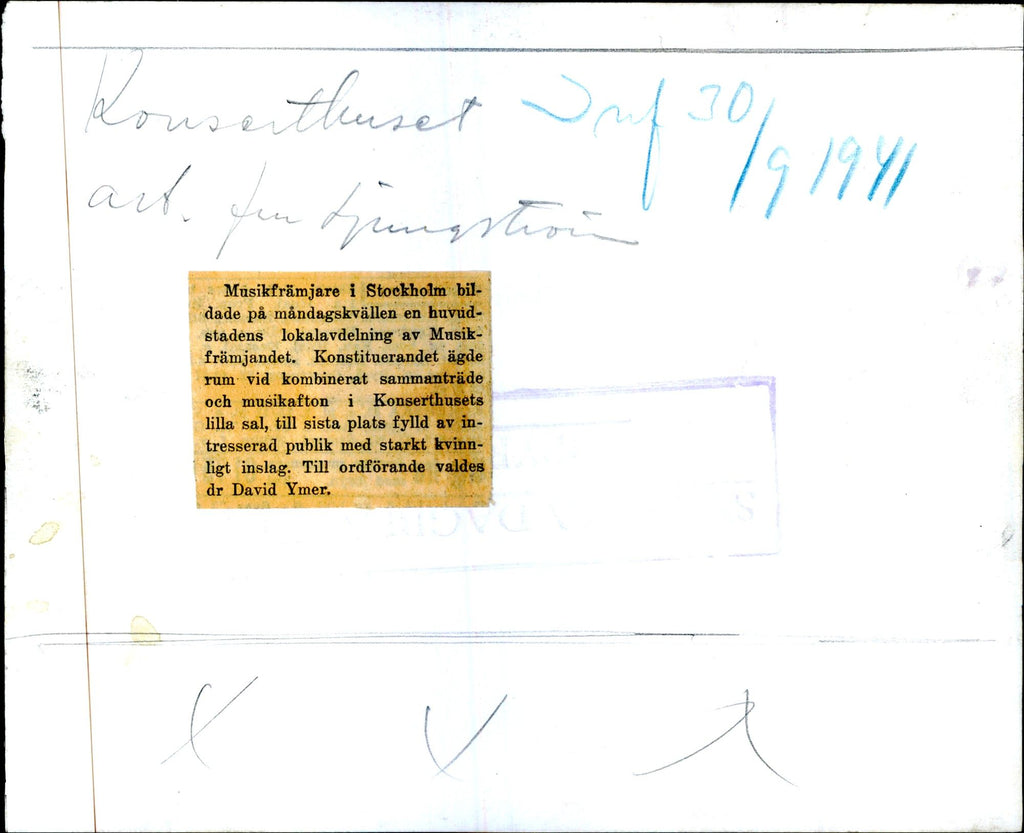 Konserthuset Inf 30/9 1941
art. fru Ljungström
Musikfrämjare i Stockholm bil-
dade på måndagskvällen en huvud-
stadens lokalavdelning av Musik-
främjandet. Konstituerandet ägde
rum vid kombinerat sammanträde
och musikafton i Konserthusets
lilla sal, till sista plats fylld av in-
tresserad publik med starkt kvinn-
ligt inslag. Till ordförande valdes
dr David Ymer.